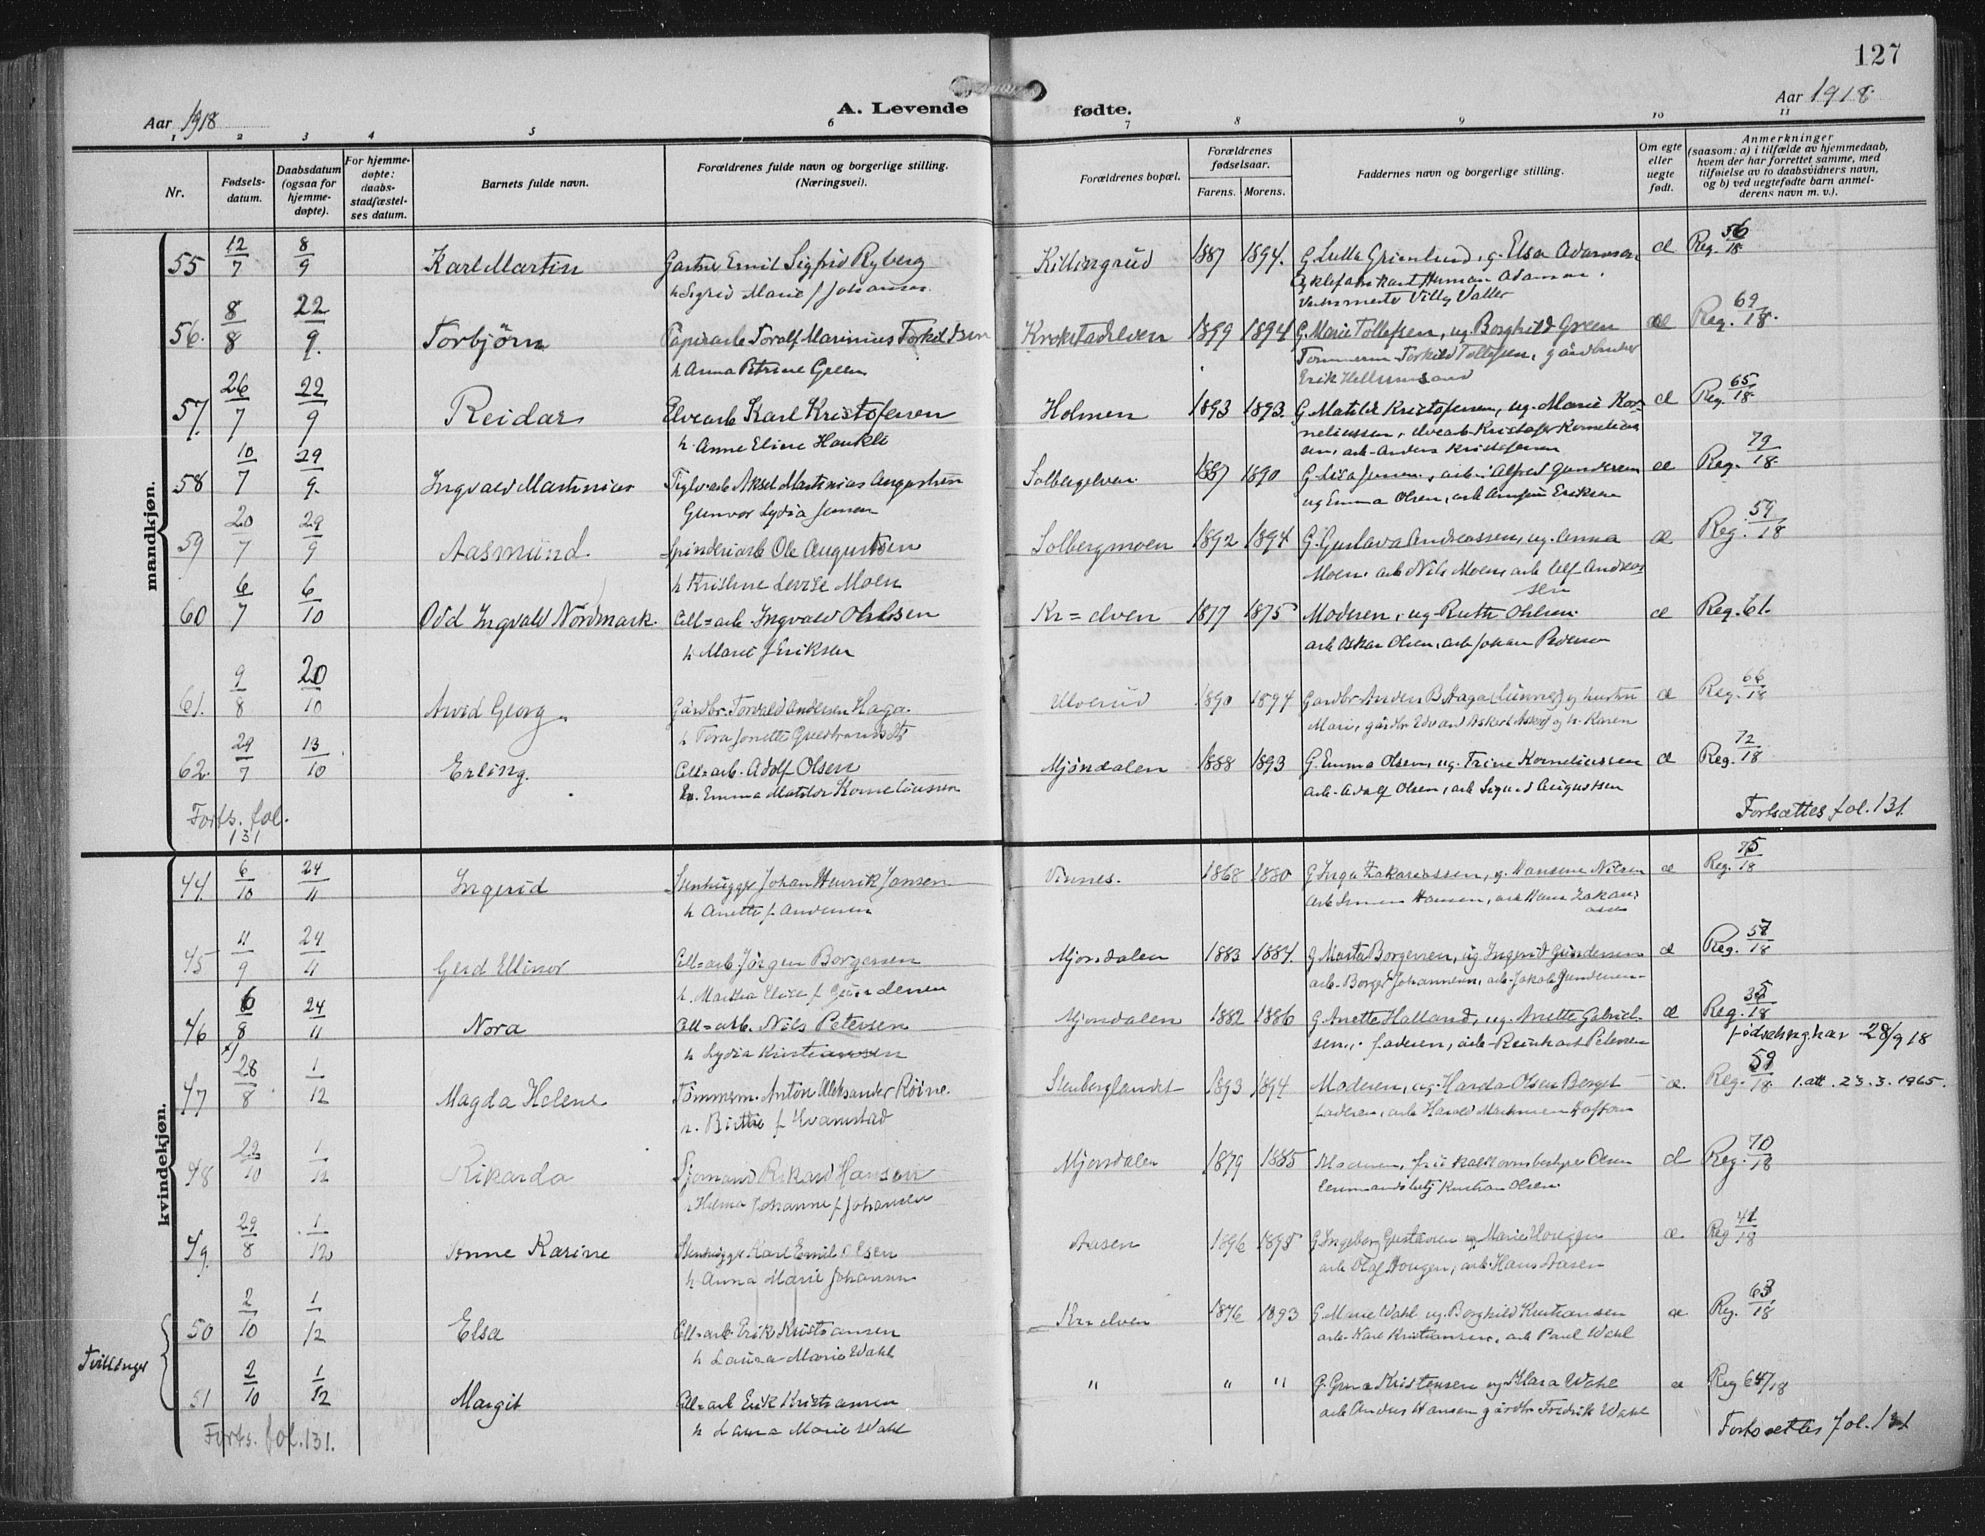 127
Aar 1918
A. Levende fødte.
Aar 1918
1 2 3 4 5 6 7 8 9 10 11
Nr.
Fødsels-
datum.
Daabsdatum
(ogsaa for
hjemme-
døpte).
For hjemme-
døpte:
daabs-
stadfæstel-
ses datum.
Barnets fulde navn.
Forældrenes fulde navn og borgerlige stilling.
(Næringsvei).
Forældrenes bopæl.
Forældrenes
fødselsaar.
Farens. Morens.
Faddernes navn og borgerlige stilling.
Om egte
eller
uegte
født.
Anmerkninger
(saasom: a) i tilfælde av hjemmedaab,
hvem der har forrettet samme, med
tilføielse av to daabsvidners navn,
og b) ved uegtefødte barn anmel-
derens navn m. v.).
mandkjøn.
55 12/7 8/9 Karl Martin Gartner Emil Sigfrid Ryberg Killingrud 1887 1894. G. Lulla Grønlund, g. Elsa Adamson, æ Reg. 56/18
h. Sigrid Marie f. Johansen. Cyklefabrikant Herman Adamson,
Verksmester Villy Valler
56. 8/8 22/9. Torbjörn Papirarb Toralf Marinius Torkildsen Krokstadelven 1899 1894 G. Marie Tollefsen, ug. Borghild Green æ Reg. 69/18.
h Anna Petrine Green Tømmerm Torkild Tollefsen, gårdbruker
Erik Hellumsand
57. 26/7 22/9 Reidar Elvearb Karl Kristofersen Holmen 1893 1893. G. Matilde Kristofersen, ug. Marie Kor- æ Reg. 65/18
h. Anne Eline Hankli neliussen, elvearb Kristofer Kornelius
sen, arb. Anders Kristofersen
58 10/7 29/9. Ingvald Martinius Teglv.arb Aksel Martinius Augustsen Solbergelven 1887 1890 G. Lisa Jensen, arb. Alfred Gundersen æ Reg. 79/18.
Gunvor Lydia Jensen ug Emma Olsen, arb Eriksen
59 20/7 29/9 Aasmund. Spinderiarb Ole Augustsen Solbergmoen 1892 1894 G. Gustava Andreassen, ug. Anna æ Reg. 59/18
h Kristine Lovise Moen Moen, arb Nils Moen, arb Alf Andreas
sen
60 6/7 6/10 Odd Ingvald Nordmark. Cell=arb. Ingvald Ohlsen Kr=elven 1877 1875 Moderen, ug Ruth Ohlsen æ Reg. 61.
h. Marie f Eriksen arb Oskar Olsen, arb Johan Pedersen
61. 9/8 20/10 Arvid Georg. Gårdbr. Torvald Andersen Haga. Ulverud 1890 1894 Gårdbr. Anders B. Haga (Lünner) og hustru æ Reg. 66/18
h Tora Jonette Guldbrandsdtr Marie, gårdbr Edvard Askerk Askerk og h. Karen
62. 29/7 13/10 Erling. Cell=arb. Adolf Olsen Mjöndalen 1888 1893 G. Emma Olsen, ug. Trine Korneliussen æ Reg. 72/18
h. Emma Matilde Korneliussen arb. Adolf Olsen, arb Sigurd Augustsen
Forts. fol.
131
Fortsættes fol. 131
kvindekjøn.
44. 6/10 24/11 Ingerid Stenhugger Johan Henrik Jansen Vinnes. 1868 1880 G Inga Zakariassen, g. Hansine Nilsen æ Reg. 75/18
h Anette f. Andersen arb Hansen, arb Hans Zakari-
assen
45 11/9 24/11 Gerd Ellinor Cell=arb. Jörgen Borgersen Mjöndalen 1883 1884. G Marta Borgersen, ug Ingerid Gundersen æ Reg. 57/18
h. Martha Elise f Gundersen arb. Borger Johannesen, arb. Jakob Gundersen
46 6/8 24/11 Nora Cell=arb. Nils Petersen Mjöndalen 1882 1886 G. Anette Halland, ug. Anette Gabriel- æ Reg. 35/18
h Lydia Kristiansen sen, faderen, arb. Reinhart Petersen fødselsinghar 28/9 18
47 x) 28/8 1/12 Magda Helene Tömmerm. Anton Aleksander Röine. Stenberglandet 1893 1894 Moderen, ug. Harda Olsen Berget æ. Reg. 59/18 1.att. 23.3.1965.
h. Birthe f Kvamstad faderen, arb Harald Hoffen
48 29/10 1/12 Rikarda Sjömand Rikard Hansen Mjöndalen 1879 1885 Moderen, frk Olsen æ Reg. 70/18
h Helma Johanne f. Johansen Kristian Olsen
49. 29/8 1/12 Anne Karine Stenhugger Karl Emil Olsen Aasen 1896 1895 G Ingeborg Gustavsen ug Marie Hougen æ Reg 41/18
h Anna Marie Johansen arb Olaf Hougen, arb. Hans Aasen
50 2/10 1/12 Elsa Cell=arb. Erik Kristiansen Kr=elven 1876 1893 G. Marie Wahl ug. Borghild Kristiansen æ Reg. 63/18
h Laura Marie Wahl arb. Karl Kristiansen, arb Paul Wahl
Tvillinger
51 2/10 1/12 Margit Cell=arb Erik Kristiansen " " " G. Kristensen ug Klara Wahl æ Reg 64/18
h Laura Marie Wahl arb Anders Hansen gårdbr Fredrik Wahl
Forts. fol. 131.
Fortsættes fol. 131